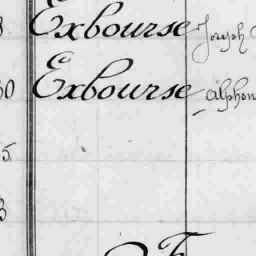 8 Exbourse Joseph
60 Exbourse Alphon
5
3
F